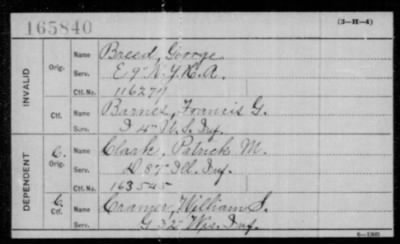 165840
(3-H-4)
INVALID
Orig.
Name Breed, George
Serv. E 9" N.Y.H.A.
Ctf. No. 116277
Ctf.
Name Barnes, Francis G.
Serv. U.S. Inf.
DEPENDENT
C. Orig.
Name Clark, Patrick M.
Serv. D 87" Ill. Inf.
Ctf. No. 163545
C. Ctf.
Name Cramer, William S.
Serv. G 32" Wis. Inf.